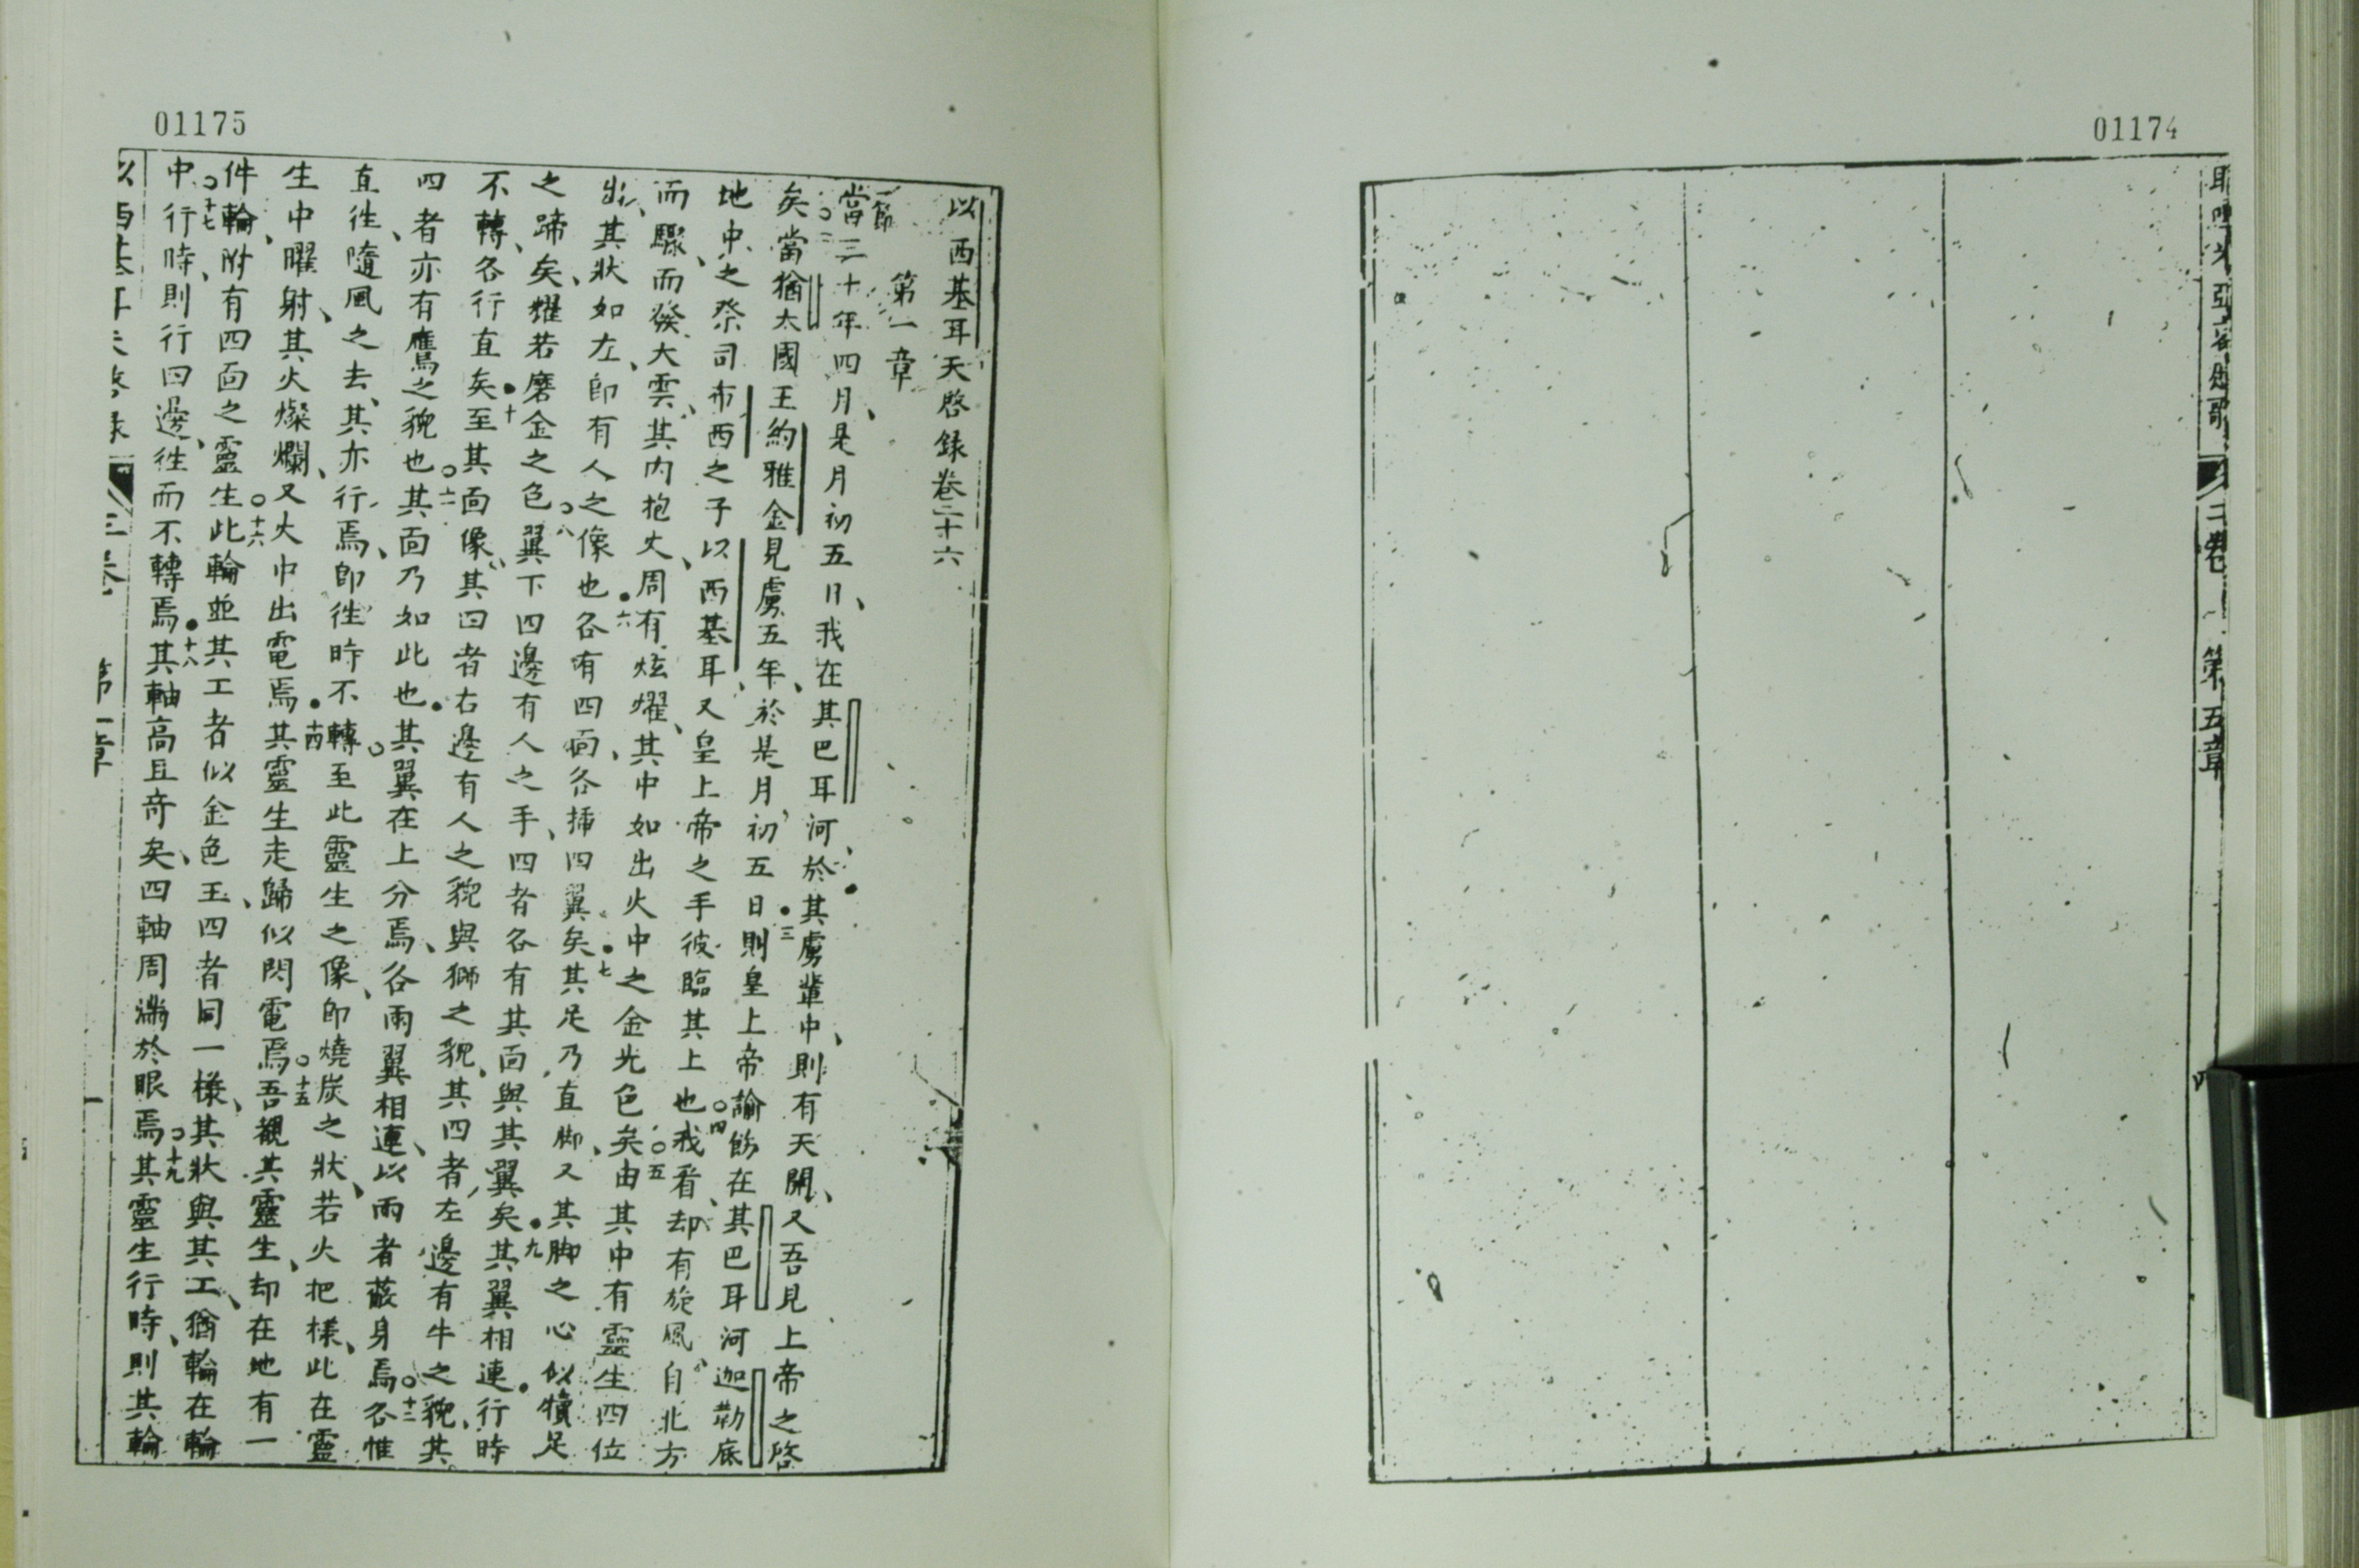 01174
亞哀歌
二卷
第五章
01175
以西基耳天啓錄卷二十六
第一章
一節
當三十年四月、是月初五日、我在其巴耳河、於其虜輩中、則有天開、又吾見上帝之啓
矣○二當猶太國王約雅金見虜五年、於是月初五日●三則皇上帝諭飭在其巴耳河迦勒底
地中之祭司布西之子以西基耳、又皇上帝之手彼臨其上也○四我看、却有旋風自北方
而驟、而發大雲、其內抱火、周有炫燿、其中如出火中之金光色矣○五由其中有靈生四位
出、其狀如左、卽有人之像也●六各有四面、各揷四翼矣●七其足乃直脚、又其脚之心似犢足
之蹄矣、耀若磨金之色○八翼下四邊有人之手、四者各有其面與其翼矣●九其翼相連、行時
不轉、各行直矣●十至其面像、其四者右邊有人之貌與獅之貌、其四者左邊有牛之貌、其
四者亦有鷹之貌也○十一其面乃如此也●其翼在上分焉、各兩翼相連、以兩者蔽身焉○十二各惟
直徃、隨風之去、其亦行焉、卽徃時不轉○至此靈生之像、卽燒炭之狀、若火把樣、此在靈
生中曜射、其火燦爛、又火中出電焉●十四其靈生走歸似閃電焉○十五吾觀其靈生、却在地有一
件輪、附有四面之靈生○十六此輪並其工者似金色玉、四者同一樣、其狀與其工、猶輪在輪
中○十七行時、則行四邊、徃而不轉焉●十八其軸高且奇矣、四軸周滿於眼焉○十九其靈生行時、則其輪
以西基耳天啓錄
三卷
第一章
一